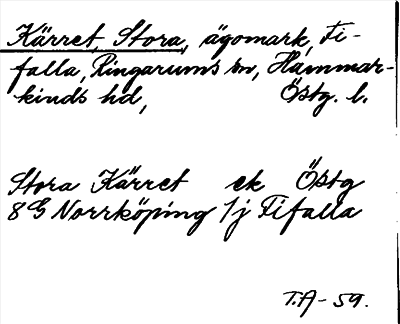 Kärret, Stora, ägomark, Fi-
falla, Ringarums sn, Hammar-
kinds hd, Östg. l.
Stora Kärret ek Östg
8G Norrköping 1j Fifalla
T.A - 59.